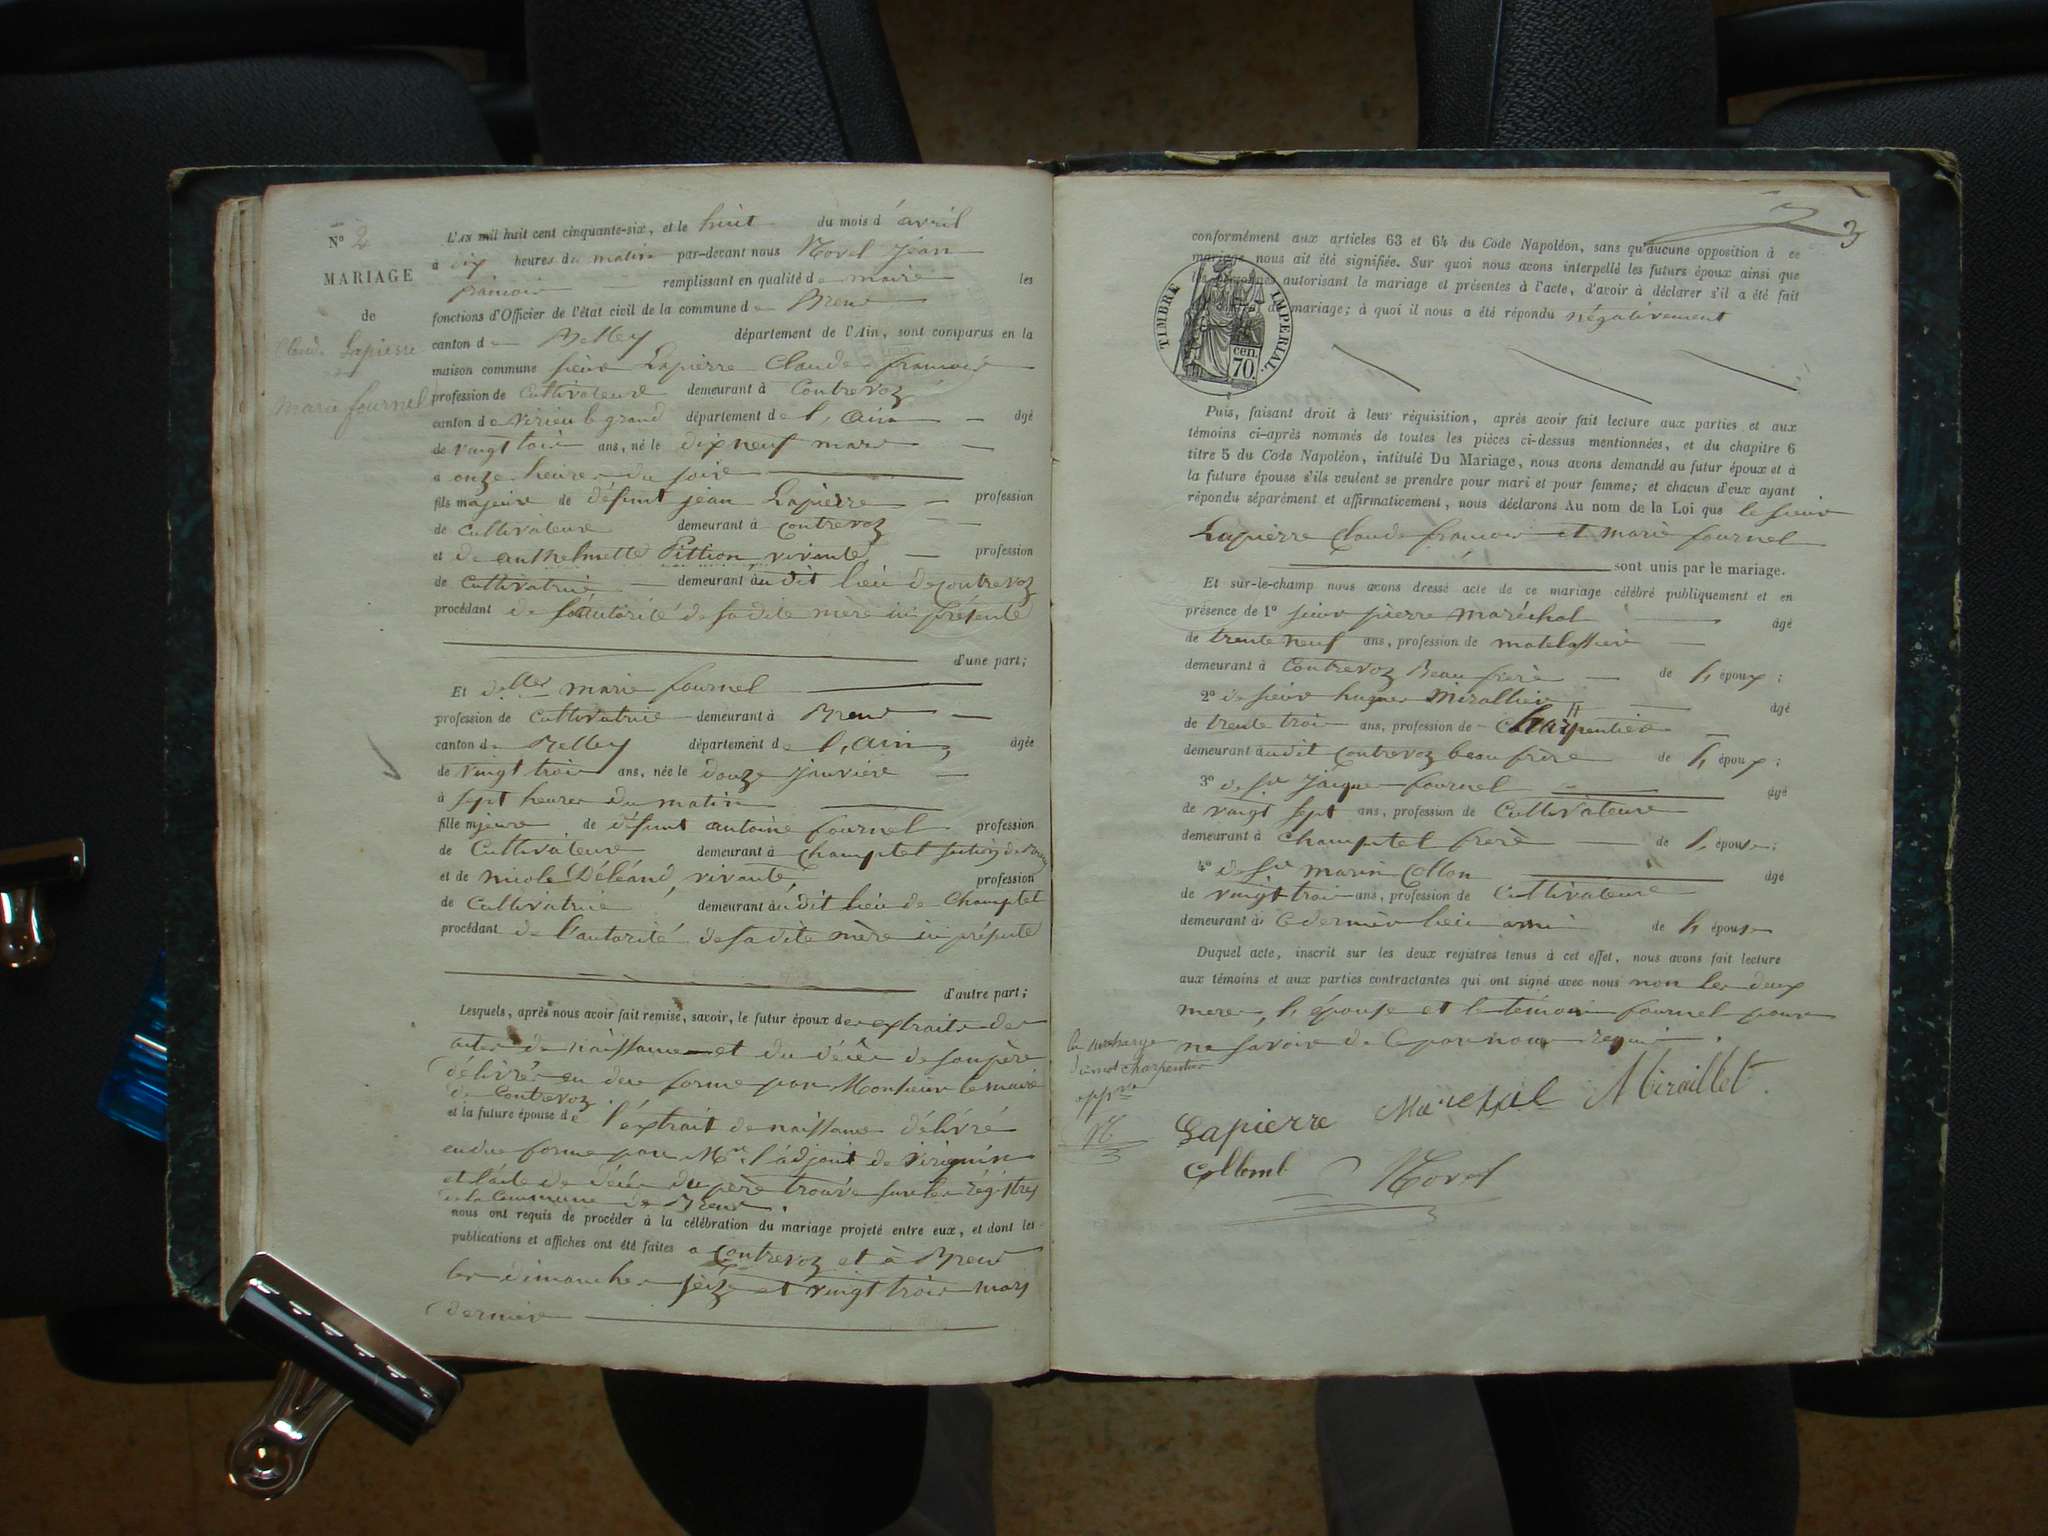 N° 2
MARIAGE
de
Claude Lapierre
Marie fournel
L'AN mil huit cent cinquante-six, et le huit du mois d'avril
à dix heures du matin par-devant nous Morel Jean
francois remplissant en qualité de maire les
fonctions d'Officier de l'état civil de la commune de Brens
canton de Belley département de l'Ain, sont comparus en la
maison commune sieur Lapierre Claude francois
profession de Cultivateur demeurant à Contrevoz
canton de virieu le grand département de l'ain âgé
de vingt trois ans, né le dix neuf mars
a onze heures du soir
fils majeur de défunt jean Lapierre profession
de cultivateur demeurant à Contrevoz
et de anthelmette Pittion vivante, profession
de cultivatrice demeurant audit lieu de contrevoz
procédant de l'autorité de sa dite mère ici présente
d'une part;
Et delles marie fournel
profession de cultivatrice demeurant à Brens
canton de Belley département de l'ain, âgée
de vingt trois ans, née le douze janvier
à sept heures du matin
fille mjeure de défunt antoine fournel profession
de Cultivateur demeurant à Champtel section de
et de nicole Déléand, vivante, profession
de Cultivatrice demeurant audit lieu de Champtel
procédant de l'autorité de sa dite mère ici présente
d'autre part;
Lesquels, après nous avoir fait remise, savoir, le futur époux des extraits des
actes de naissance et du décès de son père
délivrés en due forme par Monsieur le maire
de Contrevoz
et la future épouse de l'extrait de naissance délivré
en due forme par Mr l'adjoint de virignin
et l'acte de décès du père trouvé sur les régistres
de la Commune de Brens.
nous ont requis de procéder à la célébration du mariage projeté entre eux, et dont les
publications et affiches ont été faites a Contrevoz et à Brens
les dimanches seize et vingt trois mars
dernier
3
conformément aux articles 63 et 64 du Code Napoléon, sans qu'aucune opposition à ce
mariage nous ait été signifiée. Sur quoi nous avons interpellé les futurs époux ainsi que
les personnes autorisant le mariage et présentes à l'acte, d'avoir à déclarer s'il a été fait
de mariage; à quoi il nous a été répondu négativement
TIMBRE IMPERIAL
70 cen.
Puis, faisant droit à leur réquisition, après avoir fait lecture aux parties et aux
témoins ci-après nommés de toutes les pièces ci-dessus mentionnées, et du chapitre 6
titre 5 du Code Napoléon, intitulé Du Mariage, nous avons demandé au futur époux et à
la future épouse s'ils veulent se prendre pour mari et pour femme; et chacun d'eux ayant
répondu séparément et affirmativement, nous déclarons Au nom de la Loi que le sieur
Lapierre Claude francois et marie fournel
sont unis par le mariage.
Et sur-le-champ nous avons dressé acte de ce mariage célébré publiquement et en
présence de 1° sieur pierre maréchal âgé
de trente neuf ans, profession de matelassier
demeurant à Contrevoz Beau frère de l'époux;
2° de sieur hugues Miraillier âgé
de trente trois ans, profession de Charpentier
demeurant audit contrevoz beau frère de l'époux;
3° de sr jacques fournel âgé
de vingt sept ans, profession de Cultivateur
demeurant à champtel frère de l'épouse;
4° de sr marin Collon âgé
de vingt trois ans, profession de Cultivateur
demeurant à ce dernier lieu ami de l'épouse
Duquel acte, inscrit sur les deux registres tenus à cet effet, nous avons fait lecture
aux témoins et aux parties contractantes qui ont signé avec nous non les deux
meres, l'épouse et le témoin fournel pour
ne savoir de ce par nous requis.
la surcharge
du mot charpentier
appvée
M
Lapierre Marechal Miraillet
Collomb Morel